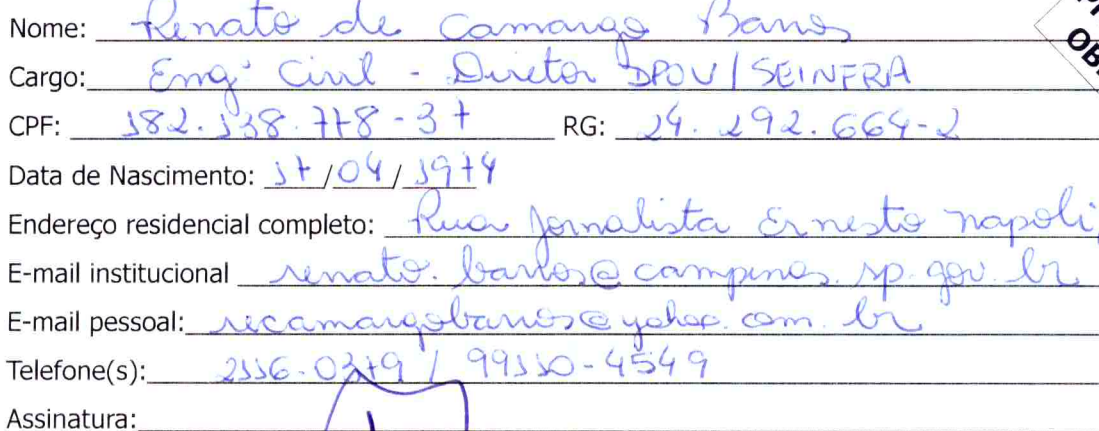 Nome: Renato de Camargo Barros
Cargo: Engº Civil - Diretor DPOV / SEINFRA
CPF: 182.138.778-37 RG: 24.292.664-2
Data de Nascimento: 17/04/1974
Endereço residencial completo: Rua Jornalista Ernesto Napoli,
E-mail institucional renato.barros@campinas.sp.gov.br
E-mail pessoal: recamargobarros@yahoo.com.br
Telefone(s): 2116-0379 / 99110-4549
Assinatura: